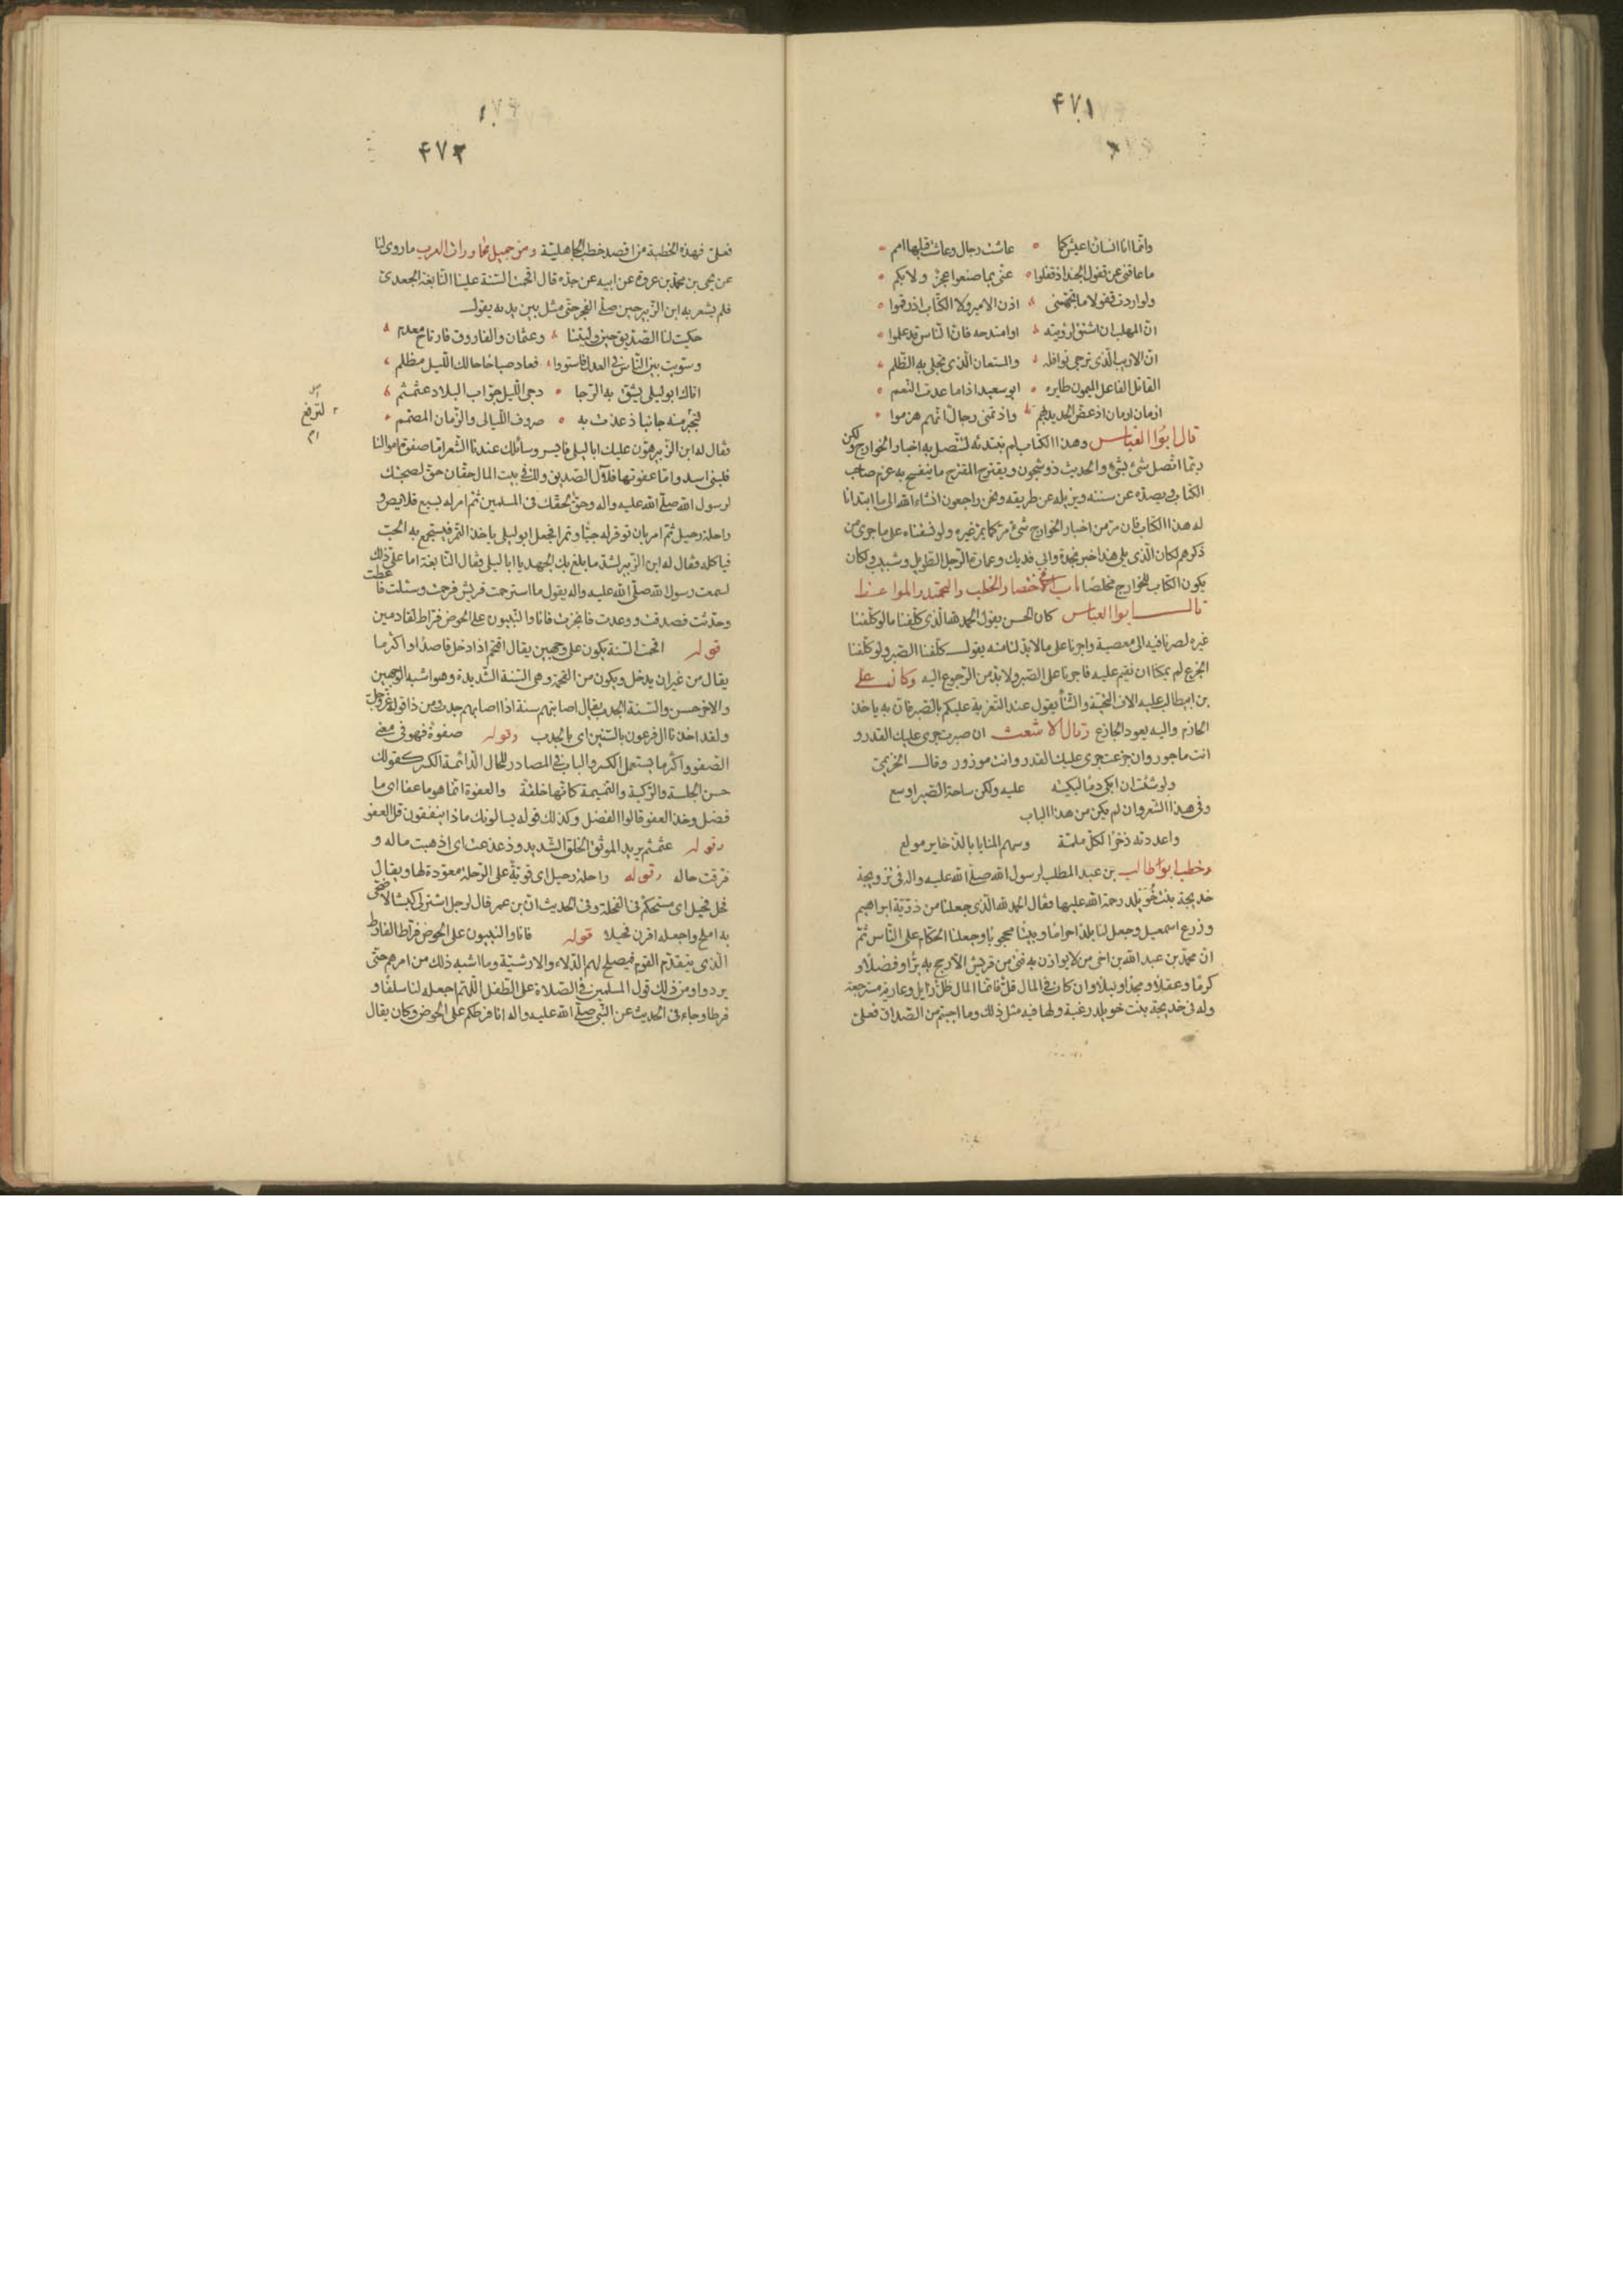 ۴۷۱
وانما انا انسان اعيش كما عاشت رجال وعاشت قبلها امم
ما عاقني عن قفول الجند اذ قفلوا عنى بما صنعوا عجز ولا بكم
ولو اردت قفولا ما تجهمنى اذن الامير ولا الكتاب اذ رقموا
ان المهلب ان اشتق لرؤيته او امتدحه فان الناس قد علموا
ان الاديب الذى ترجى نوافله والمستعان الذى تجلى به الظلم
القائل الفاعل الميمون طايره ابو سعيد اذا ما عدت النعم
ازمان ازمان اذ عض الحديد بهم واذ تمنى رجال انهم هزموا
قال ابو العباس وهذا الكتاب لم نبتدئه لتتصل به اخبار الخوارج ولكن
ربما اتصل شئ بشئ والحديث ذو شجون ويقترح المقترح ما يفسح به عزم صاحب
الكتاب ويصده عن سننه ويزيله عن طريقه ونحن راجعون انشاء الله الى ما ابتدانا
له هذا الكتاب فان مر من اخبار الخوارج شئ مر كما يمر غيره ولو نسقناه على ما جرى من
ذكرهم لكان الذى يلى هذا خبر نجدة وابي فديك وعمارة الرجل الطويل وشبيب ولكان
يكون الكتاب للخوارج مخلصا باب فى اختصار الخطب والتحميد والمواعظ
قال ابو العباس كان الحسن يقول الحمد لله الذى كلفنا ما لو كلفنا
غيره لصرنا فيه الى معصية واجرنا على ما لا بد لنا منه يقول كلفنا الصبر ولو كلفنا
الجزع لم يمكنا ان نقيم عليه فاجرنا على الصبر ولا بد من الرجوع اليه وكان على
بن ابيطالب عليه الاف التحية والثنا يقول عند التعزية عليكم بالصبر فان به ياخذ
الحازم واليه يعود الجازع وقال الاشعث ان صبرت جرى عليك القدر و
انت ماجور وان جزعت جرى عليك القدر وانت موزور وقال الخريمى
ولو شئت ان ابكى دما لبكيته عليه ولكن ساحة الصبر اوسع
وفى هذا الشعر وان لم يكن من هذا الباب
واعددته ذخرا لكل ملمة وسهم المنايا بالذخاير مولع
وخطب ابو طالب بن عبد المطلب لرسول الله صلى الله عليه واله فى تزويجه
خديجة بنت خويلد رحمة الله عليها فقال الحمد لله الذى جعلنا من ذرية ابراهيم
وزرع اسمعيل وجعل لنا بلدا حراما وبيتا محجوبا وجعلنا الحكام على الناس ثم
ان محمد بن عبد الله بن اخى من لا يوازن به فتى من قريش الا رجح به برا وفضلا و
كرما وعقلا ومجدا ونبلا وان كان فى المال قل فانما المال ظل زايل وعارية مسترجعة
وله فى خديجة بنت خويلد رغبة ولها فيه مثل ذلك وما احببتم من الصداق فعلى
۴۷۲
فعلى فهذه الخطبة من اقصد خطب الجاهلية ومن جميل محاورات العرب ما روى لنا
عن يحيى بن محمد بن عروة عن ابيه عن جده قال اقحمت السنة علينا النابغة الجعدى
فلم يشعر به ابن الزبير حين صلى الفجر حتى مثل بين يديه يقول
حكيت لنا الصديق حين وليتنا وعثمان والفاروق فارتاح معدم
وسويت بين الناس فى العدل فاستووا فعاد صباحا حالك الليل مظلم
اتاك ابو ليلى يشق به الدجا دجى الليل جواب البلاد عثمثم
لتجبر منه جانبا ذعذعت به صروف الليالى والزمان المصمم
لترفع
فقال له ابن الزبير هون عليك ابا ليلى فايسر وسائلك عندنا الشعر اما صفوة اموالنا
فلبنى اسد واما عفوتها فلآل الصديق ولك فى بيت المال حقان حق لصحبتك
لرسول الله صلى الله عليه واله وحق لحقك فى المسلمين ثم امر له بسبع قلايص و
راحلة رحيل ثم امر بان توقر له حبا وتمرا فجعل ابو ليلى ياخذ التمر فيستجمع به الحب
فياكله فقال له ابن الزبير لشد ما بلغ بك الجهد يا ابا ليلى فقال النابغة اما على ذلك
لسمعت رسول الله صلى الله عليه واله يقول ما استرحمت قريش فرحمت وسئلت فاعطت
وحدثت فصدقت ووعدت فانجزت فانا والنبيون على الحوض فراط لقادمين
قوله اقحمت السنة يكون على وجهين يقال اقتحم اذا دخل قاصدا واكثر ما
يقال من غير ان يدخل ويكون من القحمة وهى السنة الشديدة وهو اشبه الوجهين
والاخر حسن والسنة الجدب يقال اصابتهم سنة اذا اصابهم جدب ومن ذا قوله عز وجل
ولقد اخذنا ال فرعون بالسنين اى بالجدب وقوله صفوة فهو فى معنى
الصفو واكثر ما يستعمل الكسر والباب فى المصادر للحال الدائمة الكسر كقولك
حسن الجلسة والركبة والنميمة كانها خلقة والعفوة انما هو ما عفا اى ما
فضل وخذ العفو قالوا الفضل وكذلك قوله يسالونك ماذا ينفقون قل العفو
وقوله عثمثم يريد الموثق الخلق الشديد وذعذعت اى اذهبت ماله و
فرقت حاله وقوله راحلة رحيل اى قوية على الرحلة معودة لها ويقال
فحل فحيل اى مستحكم فى الفحلة وفى الحديث ان بن عمر قال لرجل اشتر لى كبشا لاضحى
به املح واجعله اقرن فحيلا قوله فانا والنبيون على الحوض فراط الفارط
الذى يتقدم القوم فيصلح لهم الدلاء والارشية وما اشبه ذلك من امرهم حتى
يردوا ومن ذلك قول المسلمين فى الصلاة على الطفل اللهم اجعله لنا سلفا و
فرطا وجاء فى الحديث عن النبى صلى الله عليه واله انا فرطكم على الحوض وكان يقال